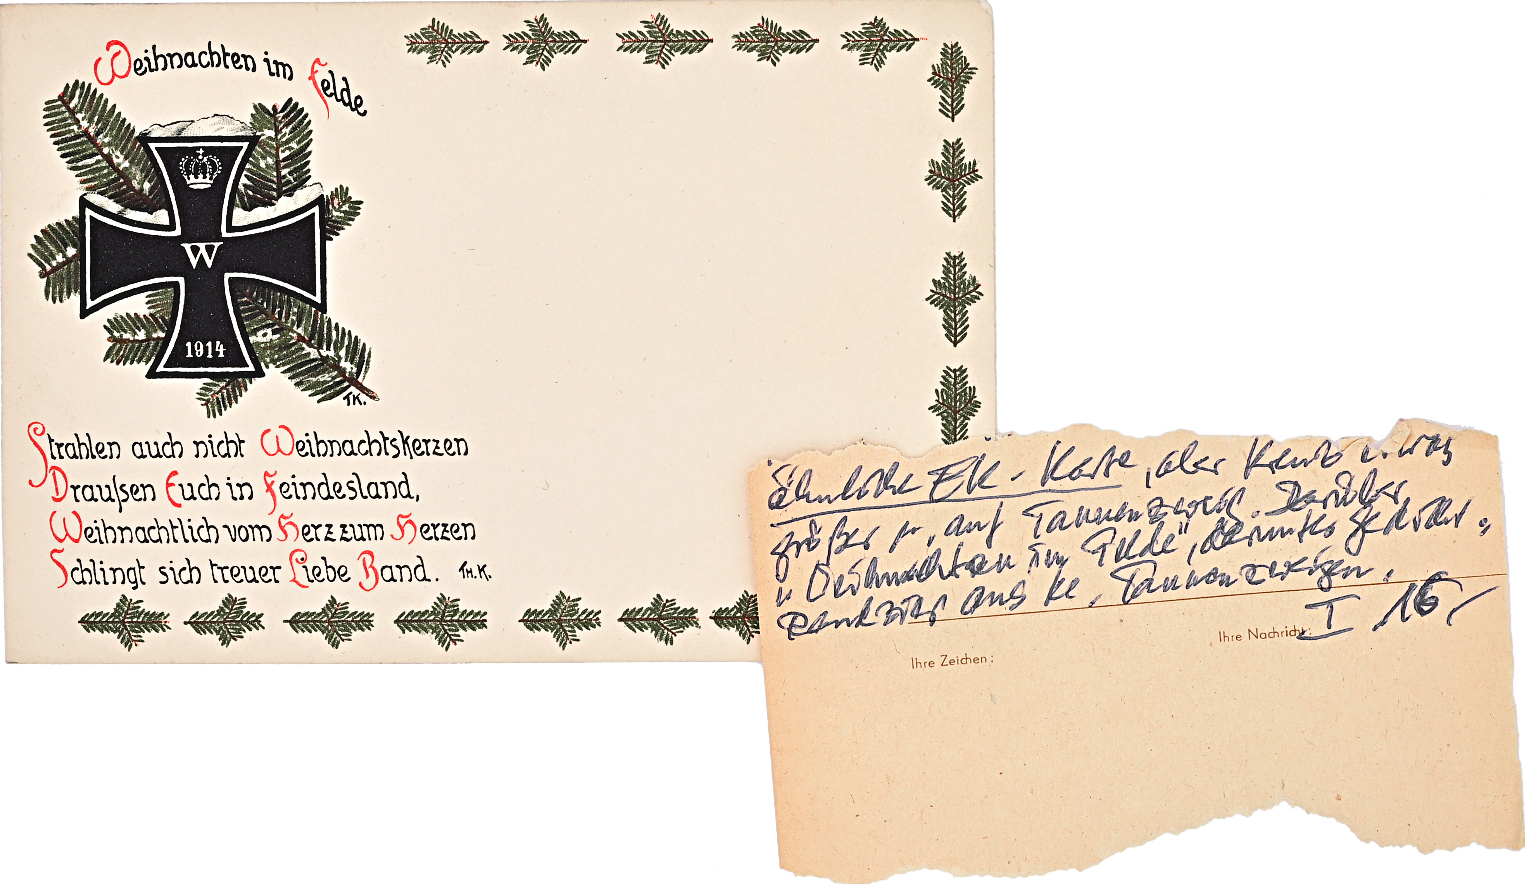 Weihnachten im Felde
W
1914
TK.
Strahlen auch nicht Weihnachtskerzen
Draußen Euch in Feindesland,
Weihnachtlich vom Herz zum Herzen
Schlingt sich treuer Liebe Band. TH.K.
ähnliche EK-Karte, aber Kreuz etwas
größer u. auf Tannenzweig. Darüber
"Weihnachten im Felde", darunter Gedicht.
Randzier aus Tannenzweigen.
I 16,-
Ihre Zeichen:
Ihre Nachricht: